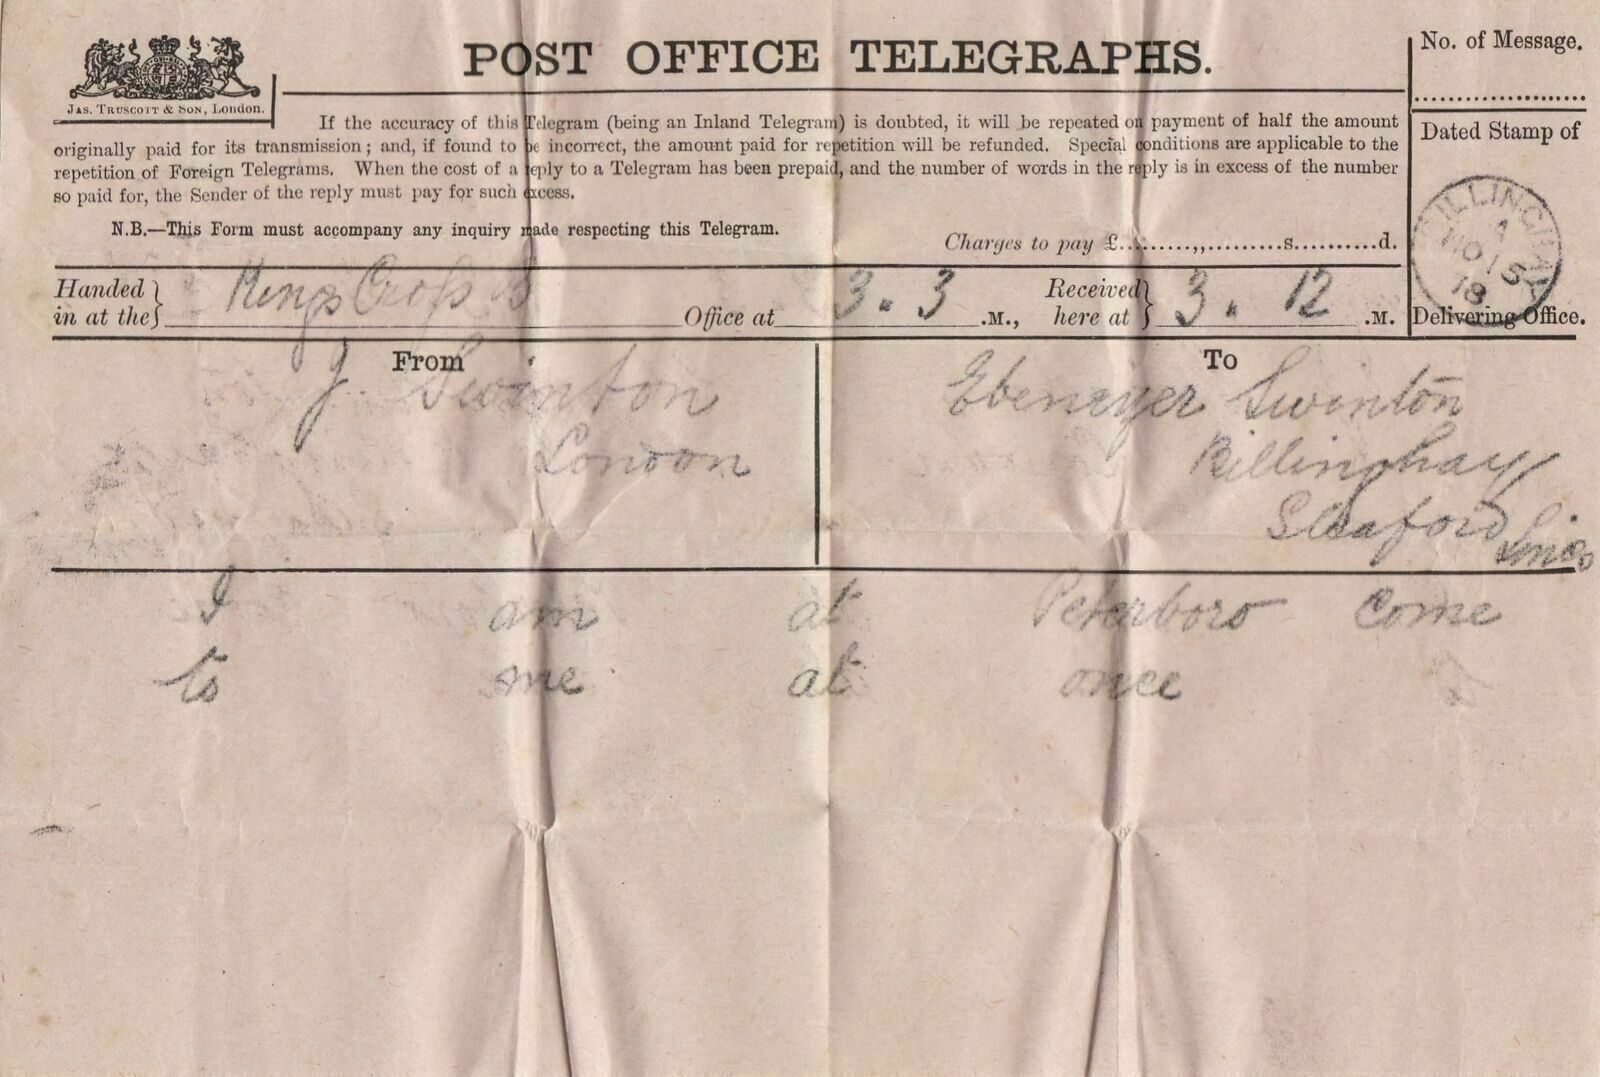 POST OFFICE TELEGRAPHS.
No. of Message.
JAS. TRUSCOTT & SON, London.
If the accuracy of this Telegram (being an Inland Telegram) is doubted, it will be repeated on payment of half the amount
originally paid for its transmission; and, if found to be incorrect, the amount paid for repetition will be refunded. Special conditions are applicable to the
repetition of Foreign Telegrams. When the cost of a reply to a Telegram has been prepaid, and the number of words in the reply is in excess of the number
so paid for, the Sender of the reply must pay for such excess.
Dated Stamp of
BILLINGHAY
A
NO 15
18
Delivering Office.
N.B.—This Form must accompany any inquiry made respecting this Telegram.
Charges to pay £.........,,.........s..........d.
Handed in at the } Kings Cross B Office at 3.3 .M., Received here at } 3.12 .M.
From
J. Swinton
London
To
Ebenezer Swinton
Billinghay
Sleaford
I am at Peterboro come
to me at once